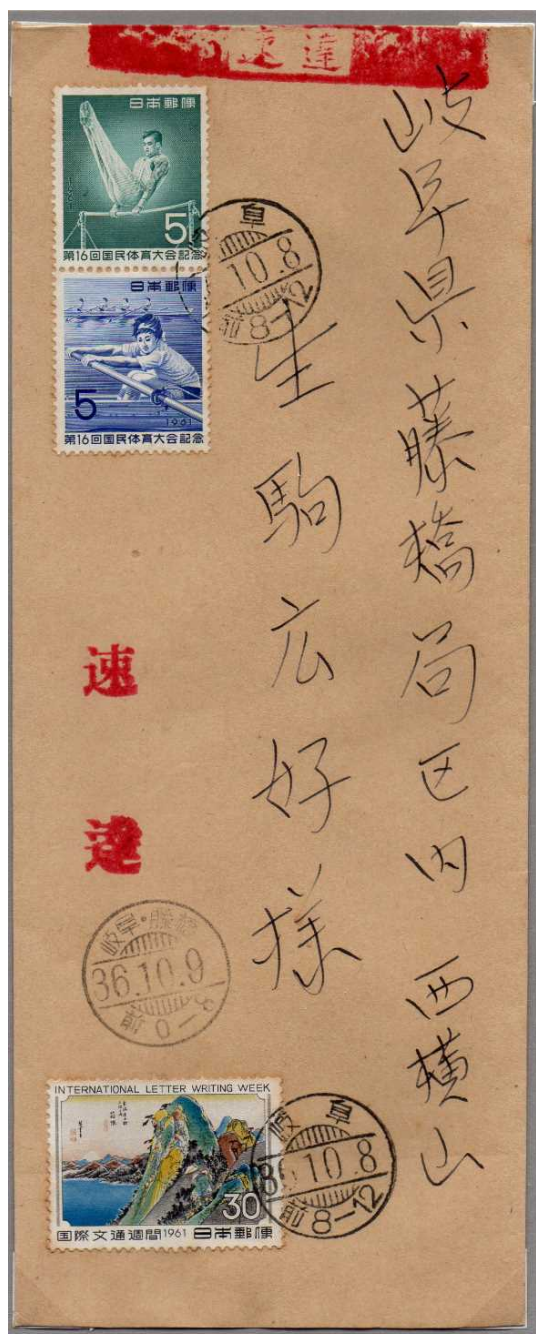 速達
岐阜県藤橋局区内 西横山
生駒広好様
日本郵便
5
第16回国民体育大会記念
日本郵便
5
1961
第16回国民体育大会記念
阜
10.8
前8-12
速
達
岐阜・藤橋
36.10.9
前0-8
INTERNATIONAL LETTER WRITING WEEK
30
国際文通週間1961 日本郵便
岐阜
36.10.8
前8-12